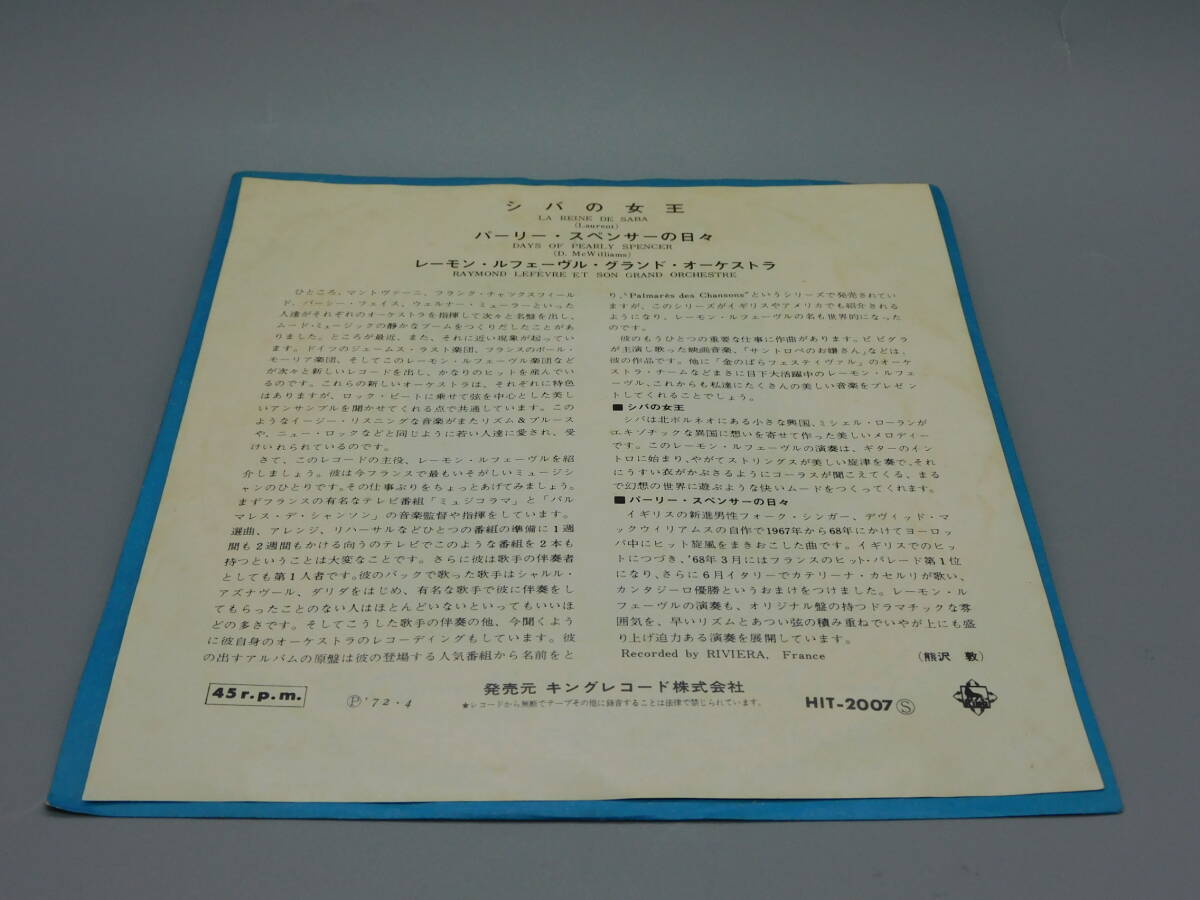 シバの女王
LA REINE DE SABA
(Laurent)
パーリー・スペンサーの日々
DAYS OF PEARLY SPENCER
(D. McWilliams)
レーモン・ルフェーヴル・グランド・オーケストラ
RAYMOND LEFÈVRE ET SON GRAND ORCHESTRE
ひところ、マントヴァーニ、フランク・チャックスフィール
ド、パーシー・フェイス、ウェルナー・ミューラーといった
人達がそれぞれのオーケストラを指揮して次々と名盤を出し、
ムード・ミュージックの静かなブームをつくりだしたことがあ
りました。ところが最近、また、それに近い現象が起ってい
ます。ドイツのジェームス・ラスト楽団、フランスのポール・
モーリア楽団、そしてこのレーモン・ルフェーヴル楽団など
が次々と新しいレコードを出し、かなりのヒットを産んでい
るのです。これらの新しいオーケストラは、それぞれに特色
はありますが、ロック・ビートに乗せて弦を中心とした美し
いアンサンブルを聞かせてくれる点で共通しています。この
ようなイージー・リスニングな音楽がまたリズム&ブルース
や、ニュー・ロックなどと同じように若い人達に愛され、受
けいれられているのです。
さて、このレコードの主役、レーモン・ルフェーヴルを紹
介しましょう。彼は今フランスで最もいそがしいミュージシ
ャンのひとりです。その仕事ぶりをちょっとあげてみましょう。
まずフランスの有名なテレビ番組「ミュジコラマ」と「パル
マレス・デ・シャンソン」の音楽監督や指揮をしています。
選曲、アレンジ、リハーサルなどひとつの番組の準備に1週
間も2週間もかける向うのテレビでこのような番組を2本も
持つということは大変なことです。さらに彼は歌手の伴奏者
としても第1人者です。彼のバックで歌った歌手はシャルル・
アズナヴール、ダリダをはじめ、有名な歌手で彼に伴奏をし
てもらったことのない人はほとんどいないといってもいいほ
どの多さです。そしてこうした歌手の伴奏の他、今聞くよう
に彼自身のオーケストラのレコーディングもしています。彼
の出すアルバムの原盤は彼の登場する人気番組から名前をと
り、“Palmarès des Chansons”というシリーズで発売されてい
ますが、このシリーズがイギリスやアメリカでも紹介される
ようになり、レーモン・ルフェーヴルの名も世界的になった
のです。
彼のもうひとつの重要な仕事に作曲があります。ビビグラ
が主演し歌った映画音楽、「サントロペのお嬢さん」などは、
彼の作品です。他に「金のばらフェスティヴァル」のオーケ
ストラ・チームなどまさに目下大活躍中のレーモン・ルフェ
ーヴル、これからも私達にたくさんの美しい音楽をプレゼン
トしてくれることでしょう。
■シバの女王
シバは北ボルネオにある小さな興国、ミシェル・ローランが
エキゾチックな異国に想いを寄せて作った美しいメロディー
です。このレーモン・ルフェーヴルの演奏は、ギターのイン
トロに始まり、やがてストリングスが美しい旋律を奏で、それ
にうすい衣がかぶさるようにコーラスが聞こえてくる、まる
で幻想の世界に遊ぶような快いムードをつくってくれます。
■パーリー・スペンサーの日々
イギリスの新進男性フォーク・シンガー、デヴィッド・マ
ックウィリアムスの自作で1967年から68年にかけてヨーロッ
パ中にヒット旋風をまきおこした曲です。イギリスでのヒッ
トにつづき、'68年3月にはフランスのヒット・パレード第1位
になり、さらに6月イタリーでカテリーナ・カセルリが歌い、
カンタジーロ優勝というおまけをつけました。レーモン・ル
フェーヴルの演奏も、オリジナル盤の持つドラマチックな雰
囲気を、早いリズムとあつい弦の積み重ねでいやが上にも盛
り上げ迫力ある演奏を展開しています。
Recorded by RIVIERA, France (熊沢 敦)
45 r.p.m.
Ⓟ'72・4
発売元 キングレコード株式会社
★レコードから無断でテープその他に録音することは法律で禁じられています。
HIT-2007 Ⓢ
KING